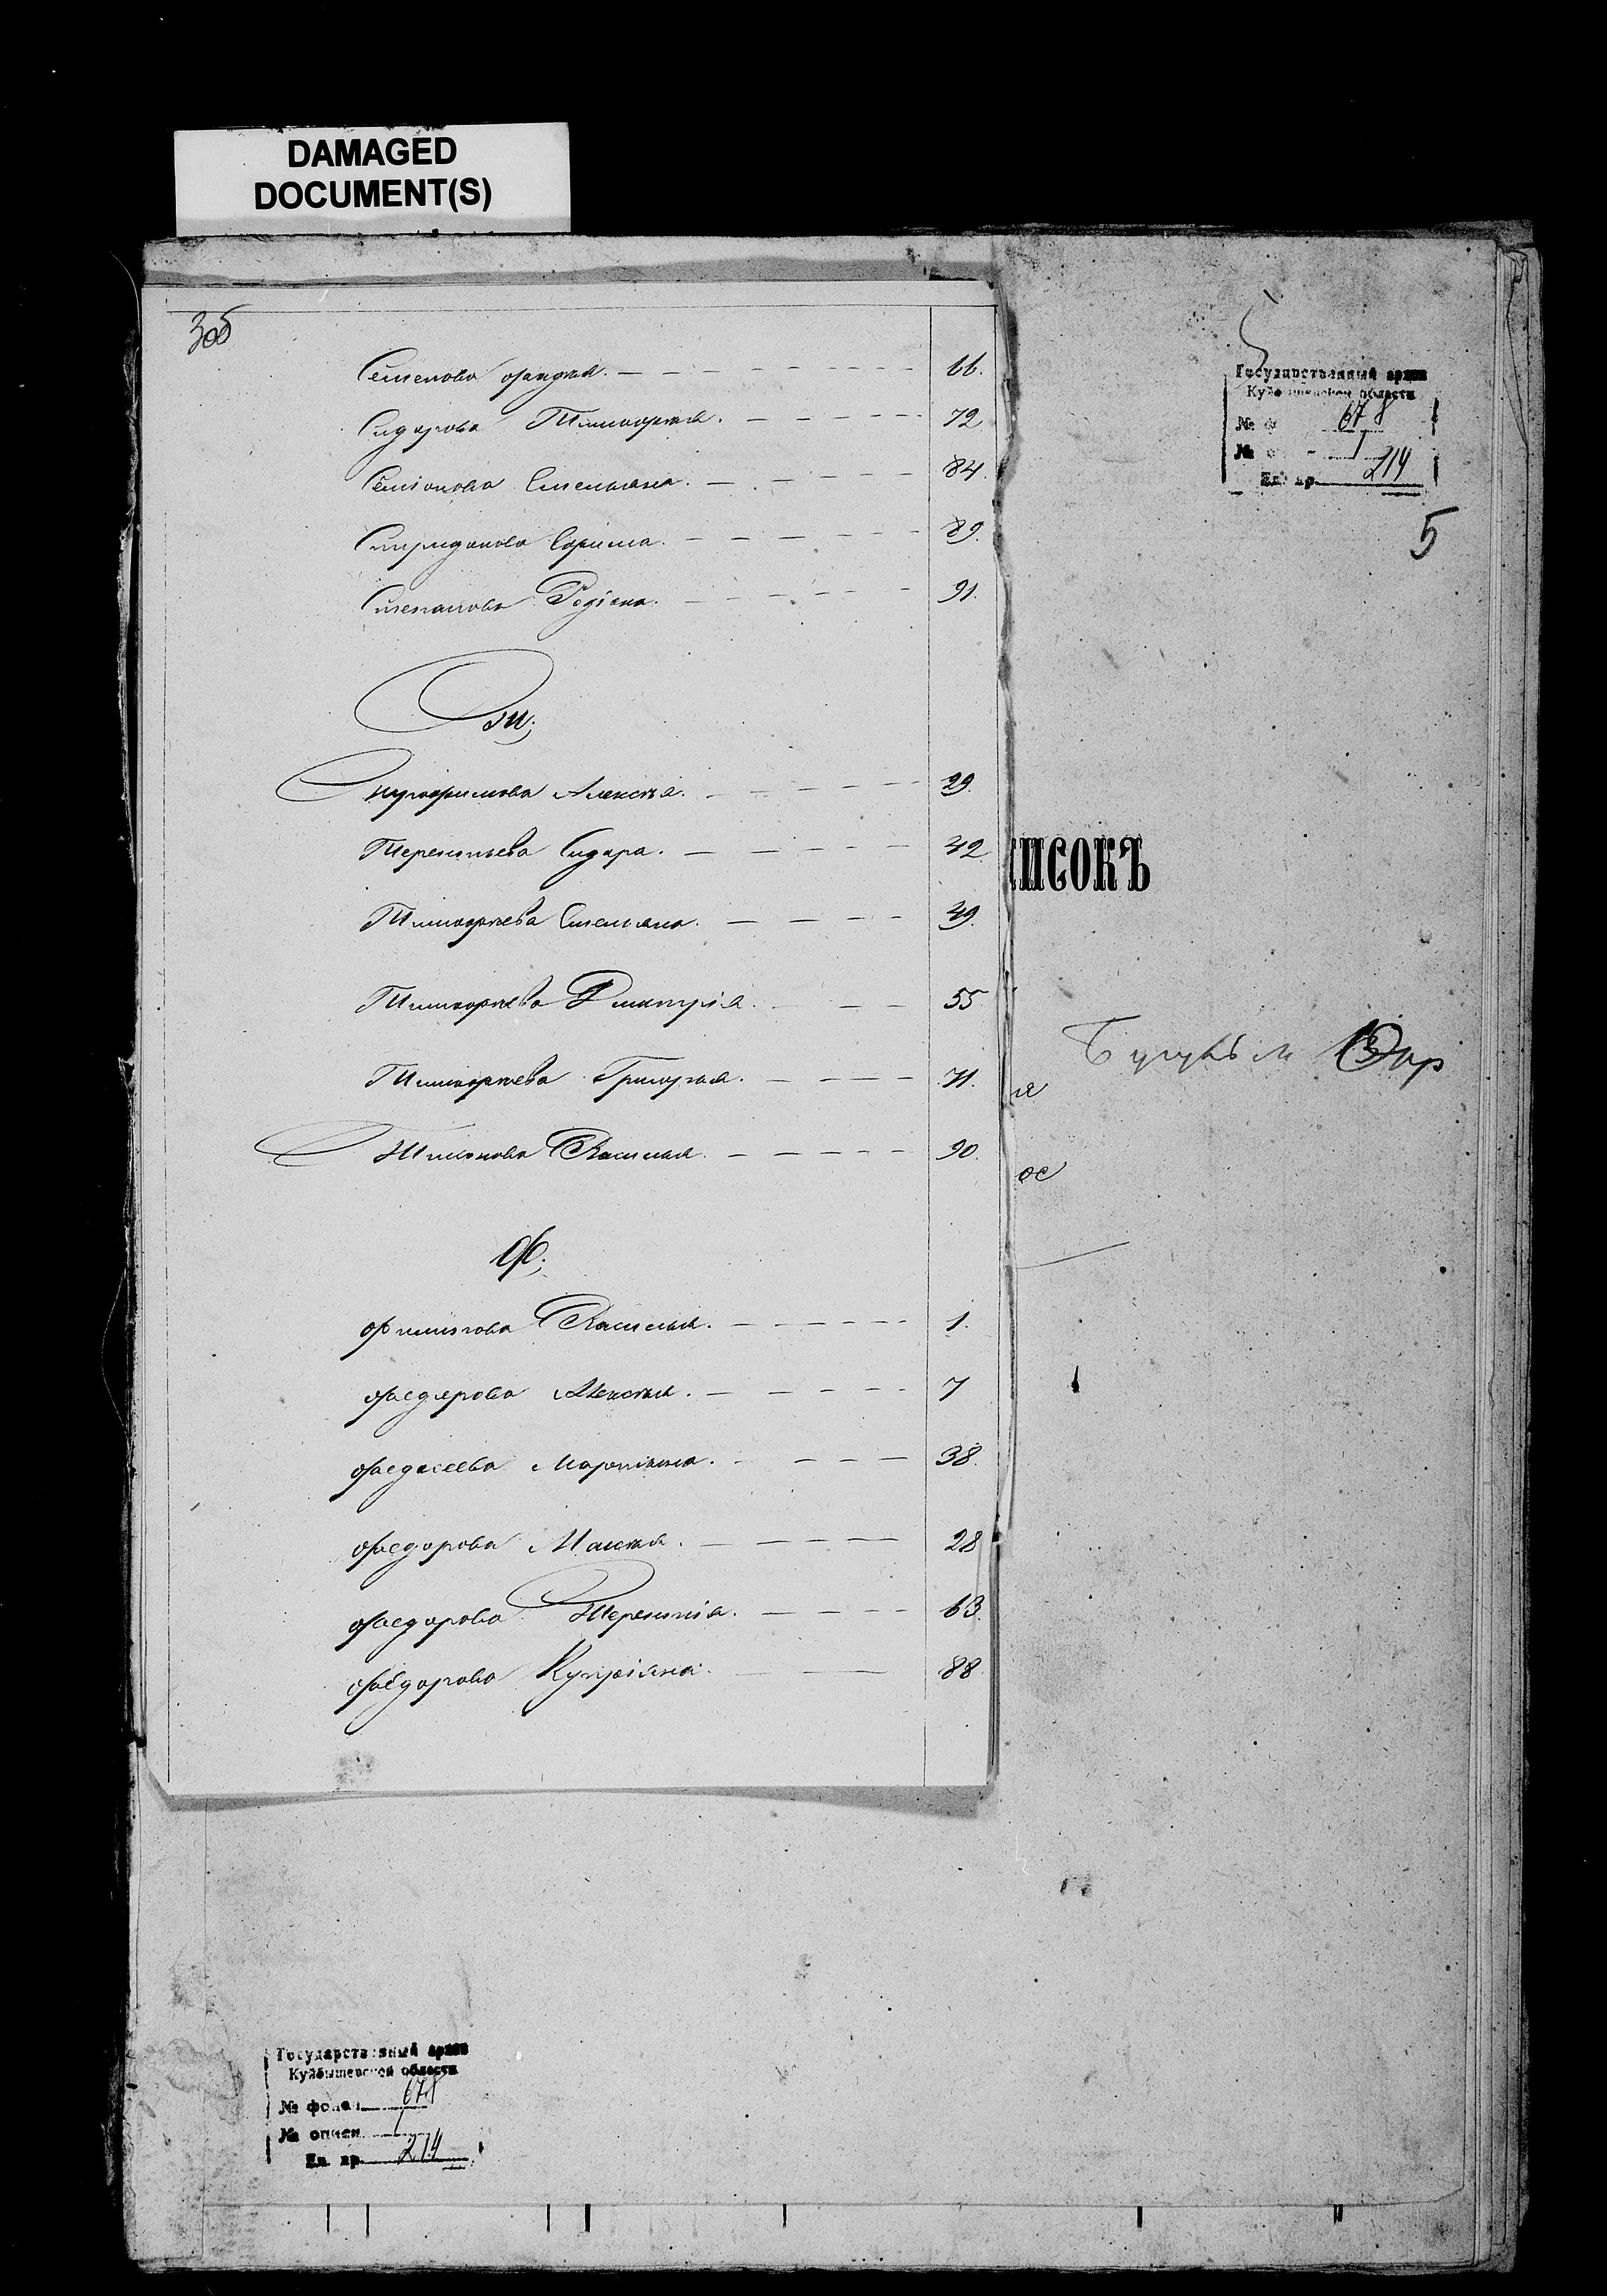 DAMAGED
DOCUMENT(S)
3об
Семенова Фадея. 66.
Сидорова Тимофея. 72
Семионова Емельяна. 84.
Спиридонова Ефима. 89.
Степанова Родіона. 91.
Т;
Трофимова Алексея. 29.
Терентьева Сидора. 42
Тимофеева Емельяна. 49.
Тимофеева Дмитрія. 55
Тимофеева Григорья. 71.
Тихонова Василья. 90.
Ф;
Филипова Василья. 1.
Федорова Алексея. 7
Федосеева Мартіяна. 38.
Федорова Моисея. 28
Федорова Терентія. 63.
Федорова Купріяна. 88
Государственный архив
Куйбышевской области
№ ф 678
№ о 1
Ед. хр. 214
5
ИСОКЪ
я
ое
Государственный архив
Куйбышевской области
№ фонда 678
№ описи 1
Ед. хр. 214